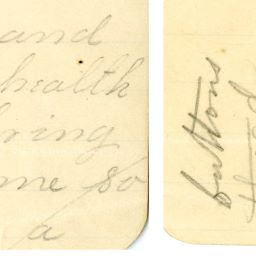 and
health
bring
me so
a
buttons